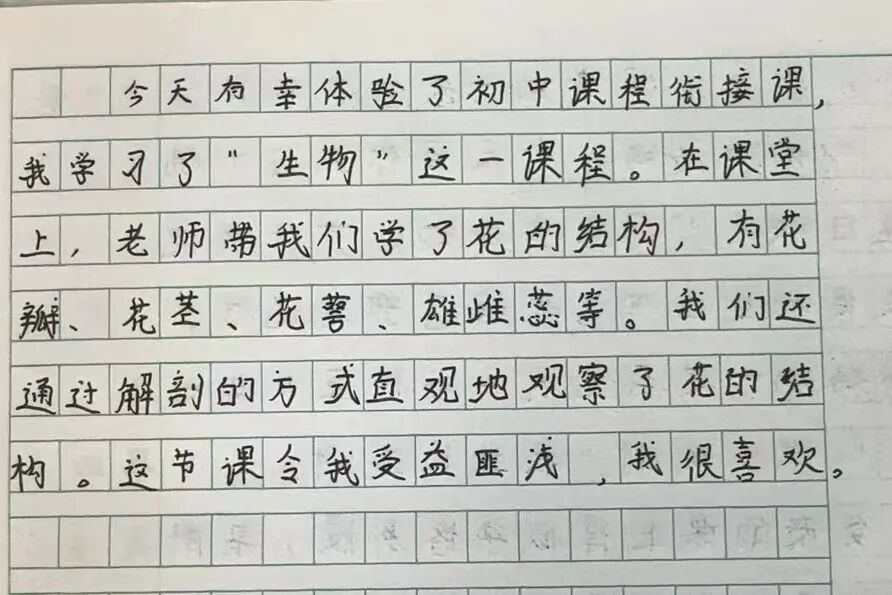 今天有幸体验了初中课程衔接课，
我学习了“生物”这一课程。在课堂
上，老师带我们学了花的结构，有花
瓣、花茎、花萼、雄雌蕊等。我们还
通过解剖的方式直观地观察了花的结
构。这节课令我受益匪浅，我很喜欢。